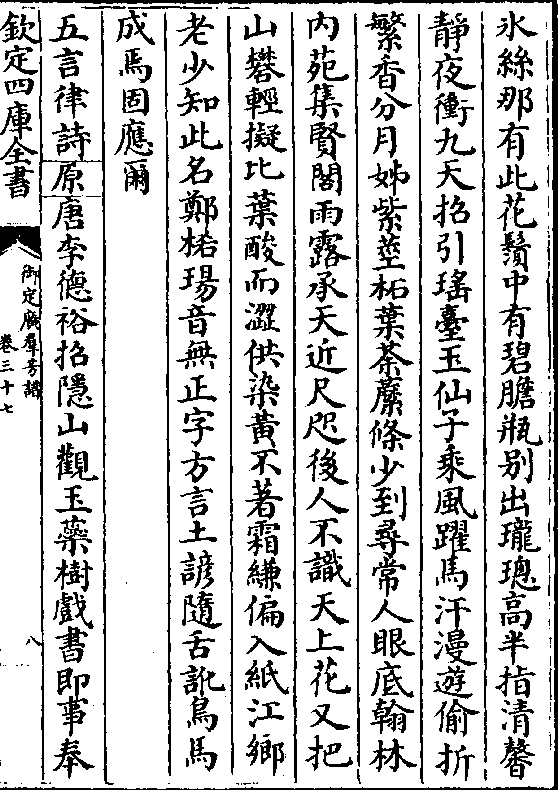 氷絲那有此花鬚中有碧膽瓶别出瓏璁高半指清馨
靜夜衝九天招引瑤臺玉仙子乘風躍馬汗漫遊偷折
繁香分月姊紫莖柘葉荼蘪條少到尋常人眼底翰林
内苑集賢閣雨露承天近尺咫後人不識天上花又把
山礬輕擬比葉酸而澀供染黃不著霜縑偏入紙江鄉
老少知此名鄭梧玚音無正字方言土諺隨舌訛烏馬
成焉固應爾
五言律詩原唐李德裕招隱山觀玉藥樹戲書即事奉
欽定四庫全書
御定廣羣芳譜
卷三十七
八